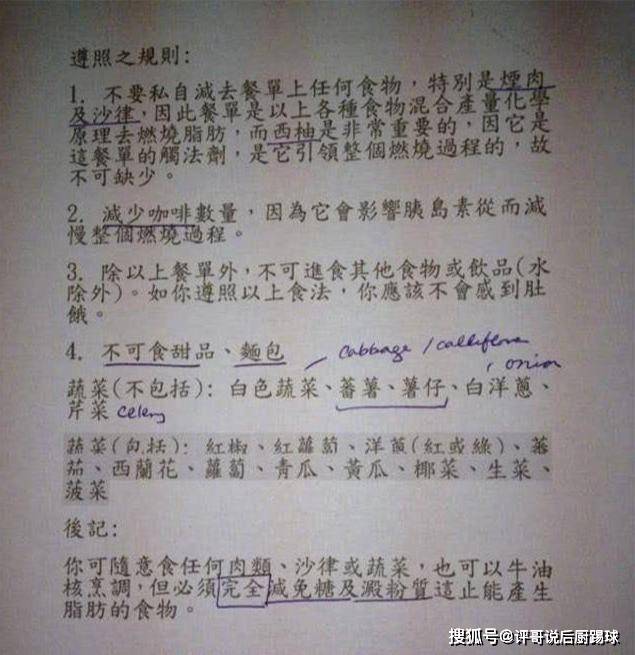 遵照之規則:
1. 不要私自減去餐單上任何食物，特別是煙肉
及沙律，因此餐單是以上各種食物混合產量化學
原理去燃燒脂肪，而西柚是非常重要的，因它是
這餐單的觸法劑，是它引領整個燃燒過程的，故
不可缺少。
2. 減少咖啡數量，因為它會影響胰島素從而減
慢整個燃燒過程。
3. 除以上餐單外，不可進食其他食物或飲品(水
除外)。如你遵照以上食法，你應該不會感到肚
餓。
4. 不可食甜品、麵包
cabbage / calliflower
, onion
蔬菜(不包括): 白色蔬菜、蕃薯、薯仔、白洋蔥、
芹菜 celery
蔬菜(包括): 紅椒、紅蘿蔔、洋蔥(紅或綠)、蕃
茄、西蘭花、蘿蔔、青瓜、黃瓜、椰菜、生菜、
菠菜
後記:
你可隨意食任何肉類、沙律或蔬菜，也可以牛油
核烹調，但必須完全減免糖及澱粉質這止能產生
脂肪的食物。
搜狐号@评哥说后厨踢球